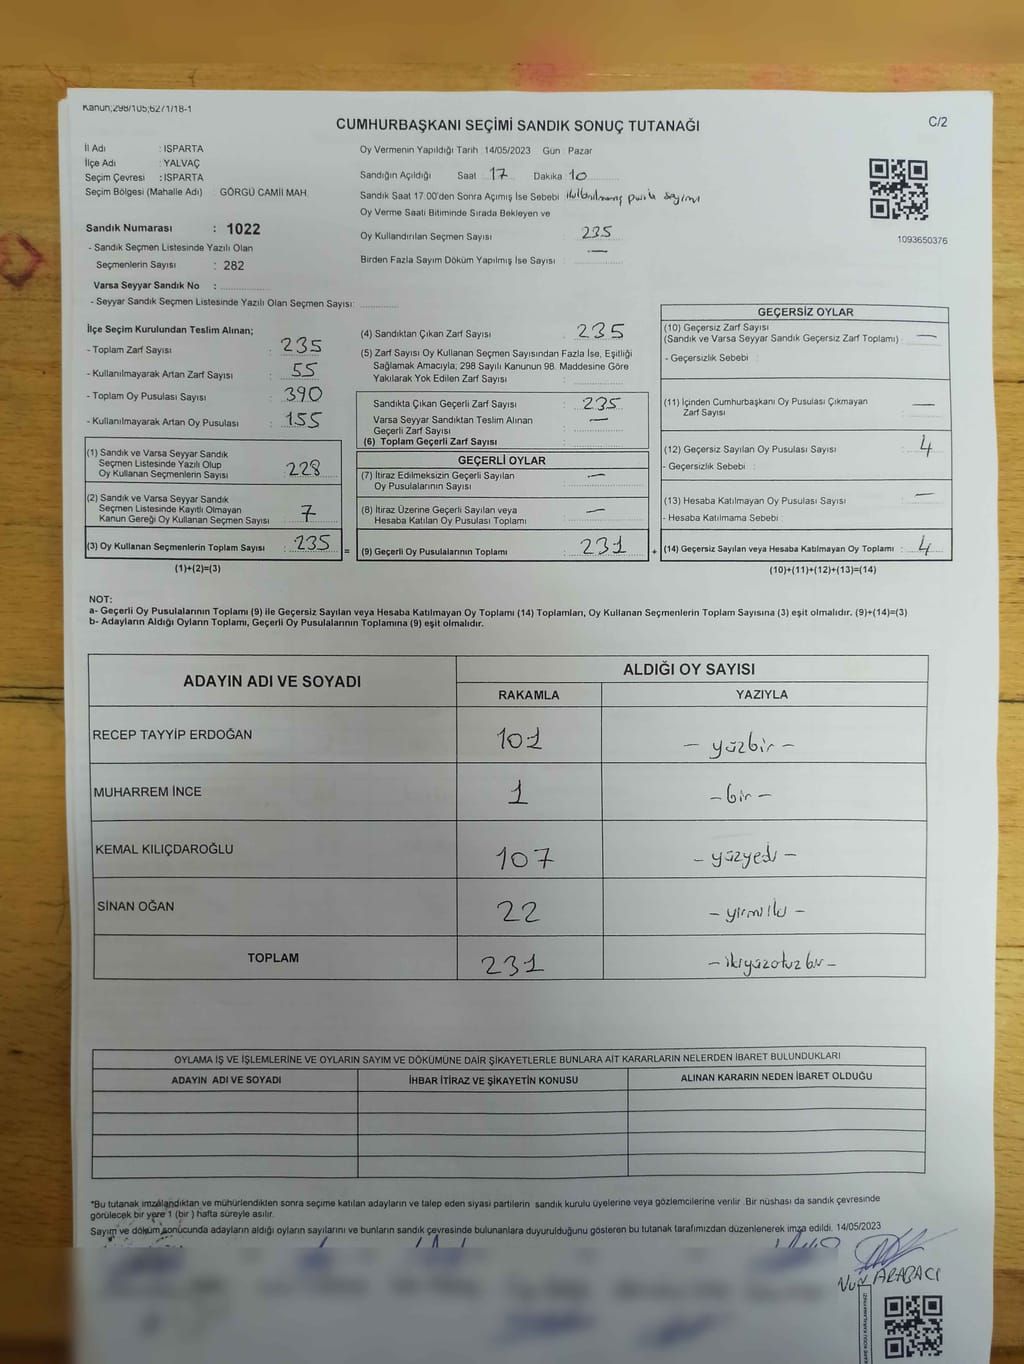 Kanun;298/105;6271/18-1
C/2
CUMHURBAŞKANI SEÇİMİ SANDIK SONUÇ TUTANAĞI
İl Adı : ISPARTA
İlçe Adı : YALVAÇ
Seçim Çevresi : ISPARTA
Seçim Bölgesi (Mahalle Adı) : GÖRGÜ CAMİİ MAH.
Oy Vermenin Yapıldığı Tarih :14/05/2023 Gün : Pazar
Sandığın Açıldığı Saat 17 Dakika 10
Sandık Saat 17:00'den Sonra Açımış İse Sebebi
Oy Verme Saati Bitiminde Sırada Bekleyen ve
Oy Kullandırılan Seçmen Sayısı : 235
Birden Fazla Sayım Döküm Yapılmış İse Sayısı : —
1093650376
Sandık Numarası : 1022
- Sandık Seçmen Listesinde Yazılı Olan
Seçmenlerin Sayısı : 282
Varsa Seyyar Sandık No :
- Seyyar Sandık Seçmen Listesinde Yazılı Olan Seçmen Sayısı:
İlçe Seçim Kurulundan Teslim Alınan;
- Toplam Zarf Sayısı : 235
- Kullanılmayarak Artan Zarf Sayısı : 55
- Toplam Oy Pusulası Sayısı : 390
- Kullanılmayarak Artan Oy Pusulası : 155
(1) Sandık ve Varsa Seyyar Sandık
Seçmen Listesinde Yazılı Olup
Oy Kullanan Seçmenlerin Sayısı : 228
(2) Sandık ve Varsa Seyyar Sandık
Seçmen Listesinde Kayıtlı Olmayan
Kanun Gereği Oy Kullanan Seçmen Sayısı : 7
(3) Oy Kullanan Seçmenlerin Toplam Sayısı : 235 =
(1)+(2)=(3)
(4) Sandıktan Çıkan Zarf Sayısı : 235
(5) Zarf Sayısı Oy Kullanan Seçmen Sayısından Fazla İse, Eşitliği
Sağlamak Amacıyla; 298 Sayılı Kanunun 98. Maddesine Göre
Yakılarak Yok Edilen Zarf Sayısı :
Sandıkta Çıkan Geçerli Zarf Sayısı : 235
Varsa Seyyar Sandıktan Teslim Alınan
Geçerli Zarf Sayısı : —
(6) Toplam Geçerli Zarf Sayısı :
GEÇERLİ OYLAR
(7) İtiraz Edilmeksizin Geçerli Sayılan
Oy Pusulalarının Sayısı : —
(8) İtiraz Üzerine Geçerli Sayılan veya
Hesaba Katılan Oy Pusulası Toplamı : —
(9) Geçerli Oy Pusulalarının Toplamı : 231 +
GEÇERSİZ OYLAR
(10) Geçersiz Zarf Sayısı
(Sandık ve Varsa Seyyar Sandık Geçersiz Zarf Toplamı) : —
- Geçersizlik Sebebi :
(11) İçinden Cumhurbaşkanı Oy Pusulası Çıkmayan
Zarf Sayısı : —
(12) Geçersiz Sayılan Oy Pusulası Sayısı : 4
- Geçersizlik Sebebi :
(13) Hesaba Katılmayan Oy Pusulası Sayısı : —
- Hesaba Katılmama Sebebi :
(14) Geçersiz Sayılan veya Hesaba Katılmayan Oy Toplamı : 4
(10)+(11)+(12)+(13)=(14)
NOT:
a- Geçerli Oy Pusulalarının Toplamı (9) ile Geçersiz Sayılan veya Hesaba Katılmayan Oy Toplamı (14) Toplamları, Oy Kullanan Seçmenlerin Toplam Sayısına (3) eşit olmalıdır. (9)+(14)=(3)
b- Adayların Aldığı Oyların Toplamı, Geçerli Oy Pusulalarının Toplamına (9) eşit olmalıdır.
ADAYIN ADI VE SOYADI
ALDIĞI OY SAYISI
RAKAMLA YAZIYLA
RECEP TAYYİP ERDOĞAN 101 – yüzbir –
MUHARREM İNCE 1 – bir –
KEMAL KILIÇDAROĞLU 107 – yüzyedi –
SİNAN OĞAN 22 – yirmiiki –
TOPLAM 231 – ikiyüzotuzbir –
OYLAMA İŞ VE İŞLEMLERİNE VE OYLARIN SAYIM VE DÖKÜMÜNE DAİR ŞİKAYETLERLE BUNLARA AİT KARARLARIN NELERDEN İBARET BULUNDUKLARI
ADAYIN ADI VE SOYADI İHBAR İTİRAZ VE ŞİKAYETİN KONUSU ALINAN KARARIN NEDEN İBARET OLDUĞU
*Bu tutanak imzalandıktan ve mühürlendikten sonra seçime katılan adayların ve talep eden siyasi partilerin sandık kurulu üyelerine veya gözlemcilerine verilir .Bir nüshası da sandık çevresinde
görülecek bir yere 1 (bir ) hafta süreyle asılır.
Sayım ve döküm sonucunda adayların aldığı oyların sayılarını ve bunların sandık çevresinde bulunanlara duyurulduğunu gösteren bu tutanak tarafımızdan düzenlenerek imza edildi. 14/05/2023
ARABACI